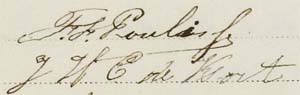 F. F. Poulisse
J W E de Kort